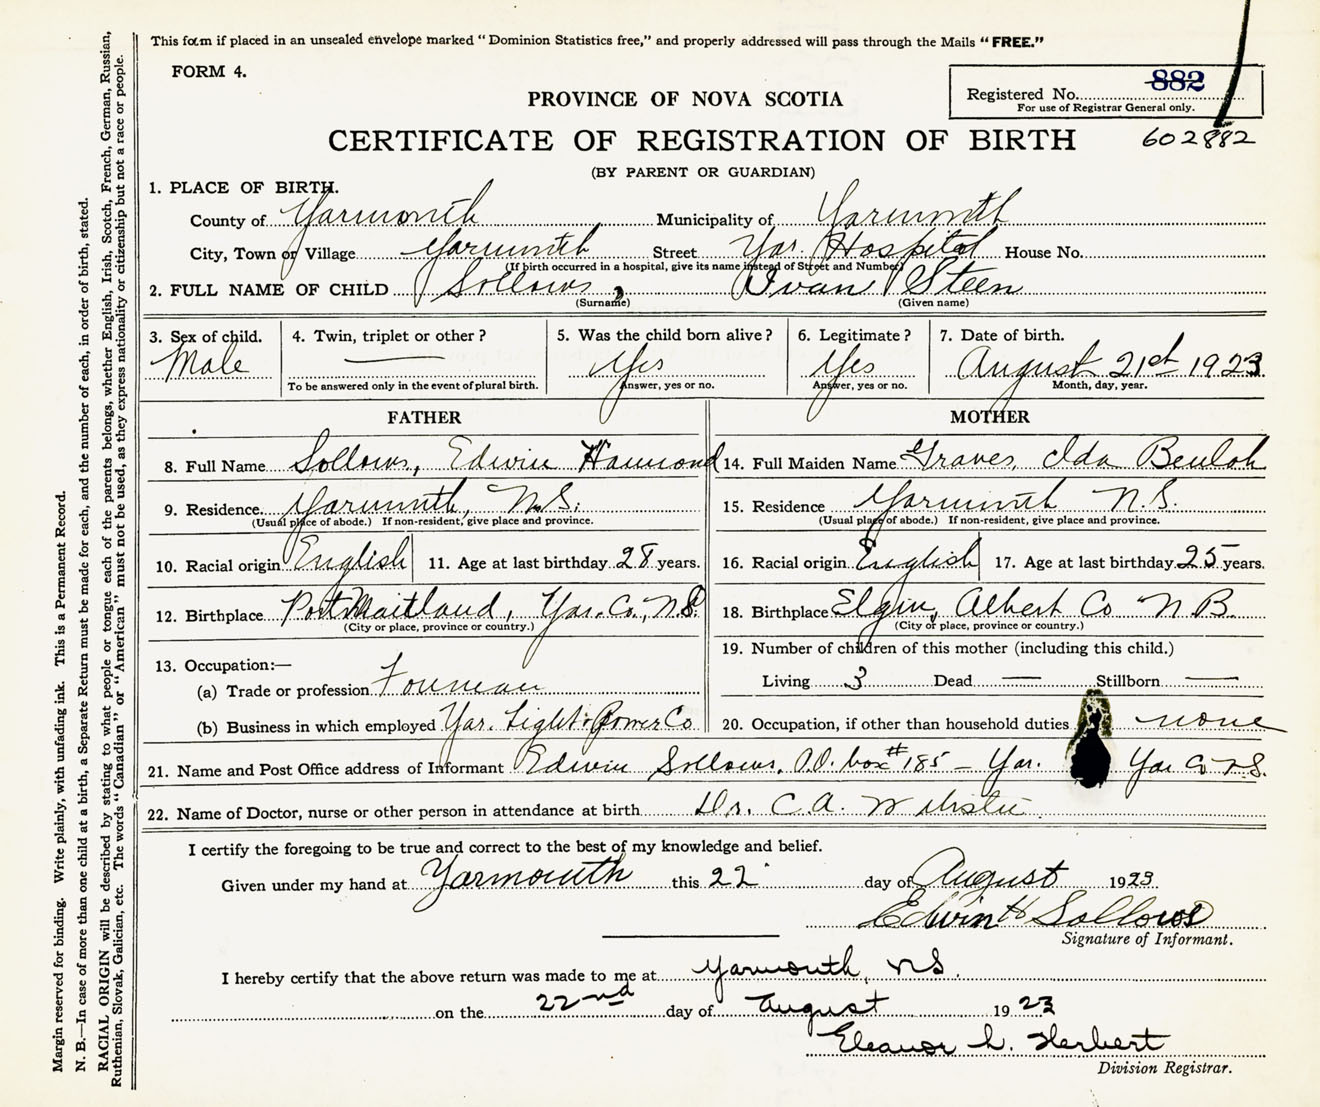 This form if placed in an unsealed envelope marked "Dominion Statistics free," and properly addressed will pass through the Mails "FREE."
FORM 4.
Registered No. 882
For use of Registrar General only.
PROVINCE OF NOVA SCOTIA
602882
CERTIFICATE OF REGISTRATION OF BIRTH
(BY PARENT OR GUARDIAN)
1. PLACE OF BIRTH.
County of Yarmouth Municipality of Yarmouth
City, Town or Village Yarmouth Street Yar. Hospital House No.
(If birth occurred in a hospital, give its name instead of Street and Number)
2. FULL NAME OF CHILD Sollows, Ivan Steen
(Surname) (Given name)
3. Sex of child. 4. Twin, triplet or other? 5. Was the child born alive? 6. Legitimate? 7. Date of birth.
Male — Yes Yes August 21st 1923
To be answered only in the event of plural birth. Answer, yes or no. Answer, yes or no. Month, day, year.
FATHER
8. Full Name Sollows, Edwin Hammond
9. Residence. Yarmouth, N.S.
(Usual place of abode.) If non-resident, give place and province.
10. Racial origin English 11. Age at last birthday 28 years.
12. Birthplace Port Maitland, Yar. Co., N.S.
(City or place, province or country.)
13. Occupation:—
(a) Trade or profession Foreman
(b) Business in which employed Yar. Light & Power Co
MOTHER
14. Full Maiden Name Graves, Ida Beulah
15. Residence Yarmouth N.S.
(Usual place of abode.) If non-resident, give place and province.
16. Racial origin English 17. Age at last birthday 25 years.
18. Birthplace Elgin, Albert Co N.B.
(City or place, province or country.)
19. Number of children of this mother (including this child.)
Living 3 Dead — Stillborn —
20. Occupation, if other than household duties none
21. Name and Post Office address of Informant Edwin Sollows, P.O. box #185 — Yar. Yar Co N.S.
22. Name of Doctor, nurse or other person in attendance at birth Dr. C.A. Webster
I certify the foregoing to be true and correct to the best of my knowledge and belief.
Given under my hand at Yarmouth this 22 day of August 1923.
Edwin H Sollows
Signature of Informant.
I hereby certify that the above return was made to me at Yarmouth, N.S.
on the 22nd day of August 1923
Eleanor L. Herbert
Division Registrar.
Margin reserved for binding. Write plainly, with unfading ink. This is a Permanent Record.
N. B.—In case of more than one child at a birth, a Separate Return must be made for each, and the number of each, in order of birth, stated.
RACIAL ORIGIN will be described by stating to what people or tongue each of the parents belongs, whether English, Irish, Scotch, French, German, Russian,
Ruthenian, Slovak, Galician, etc. The words "Canadian" or "American" must not be used, as they express nationality or citizenship but not a race or people.